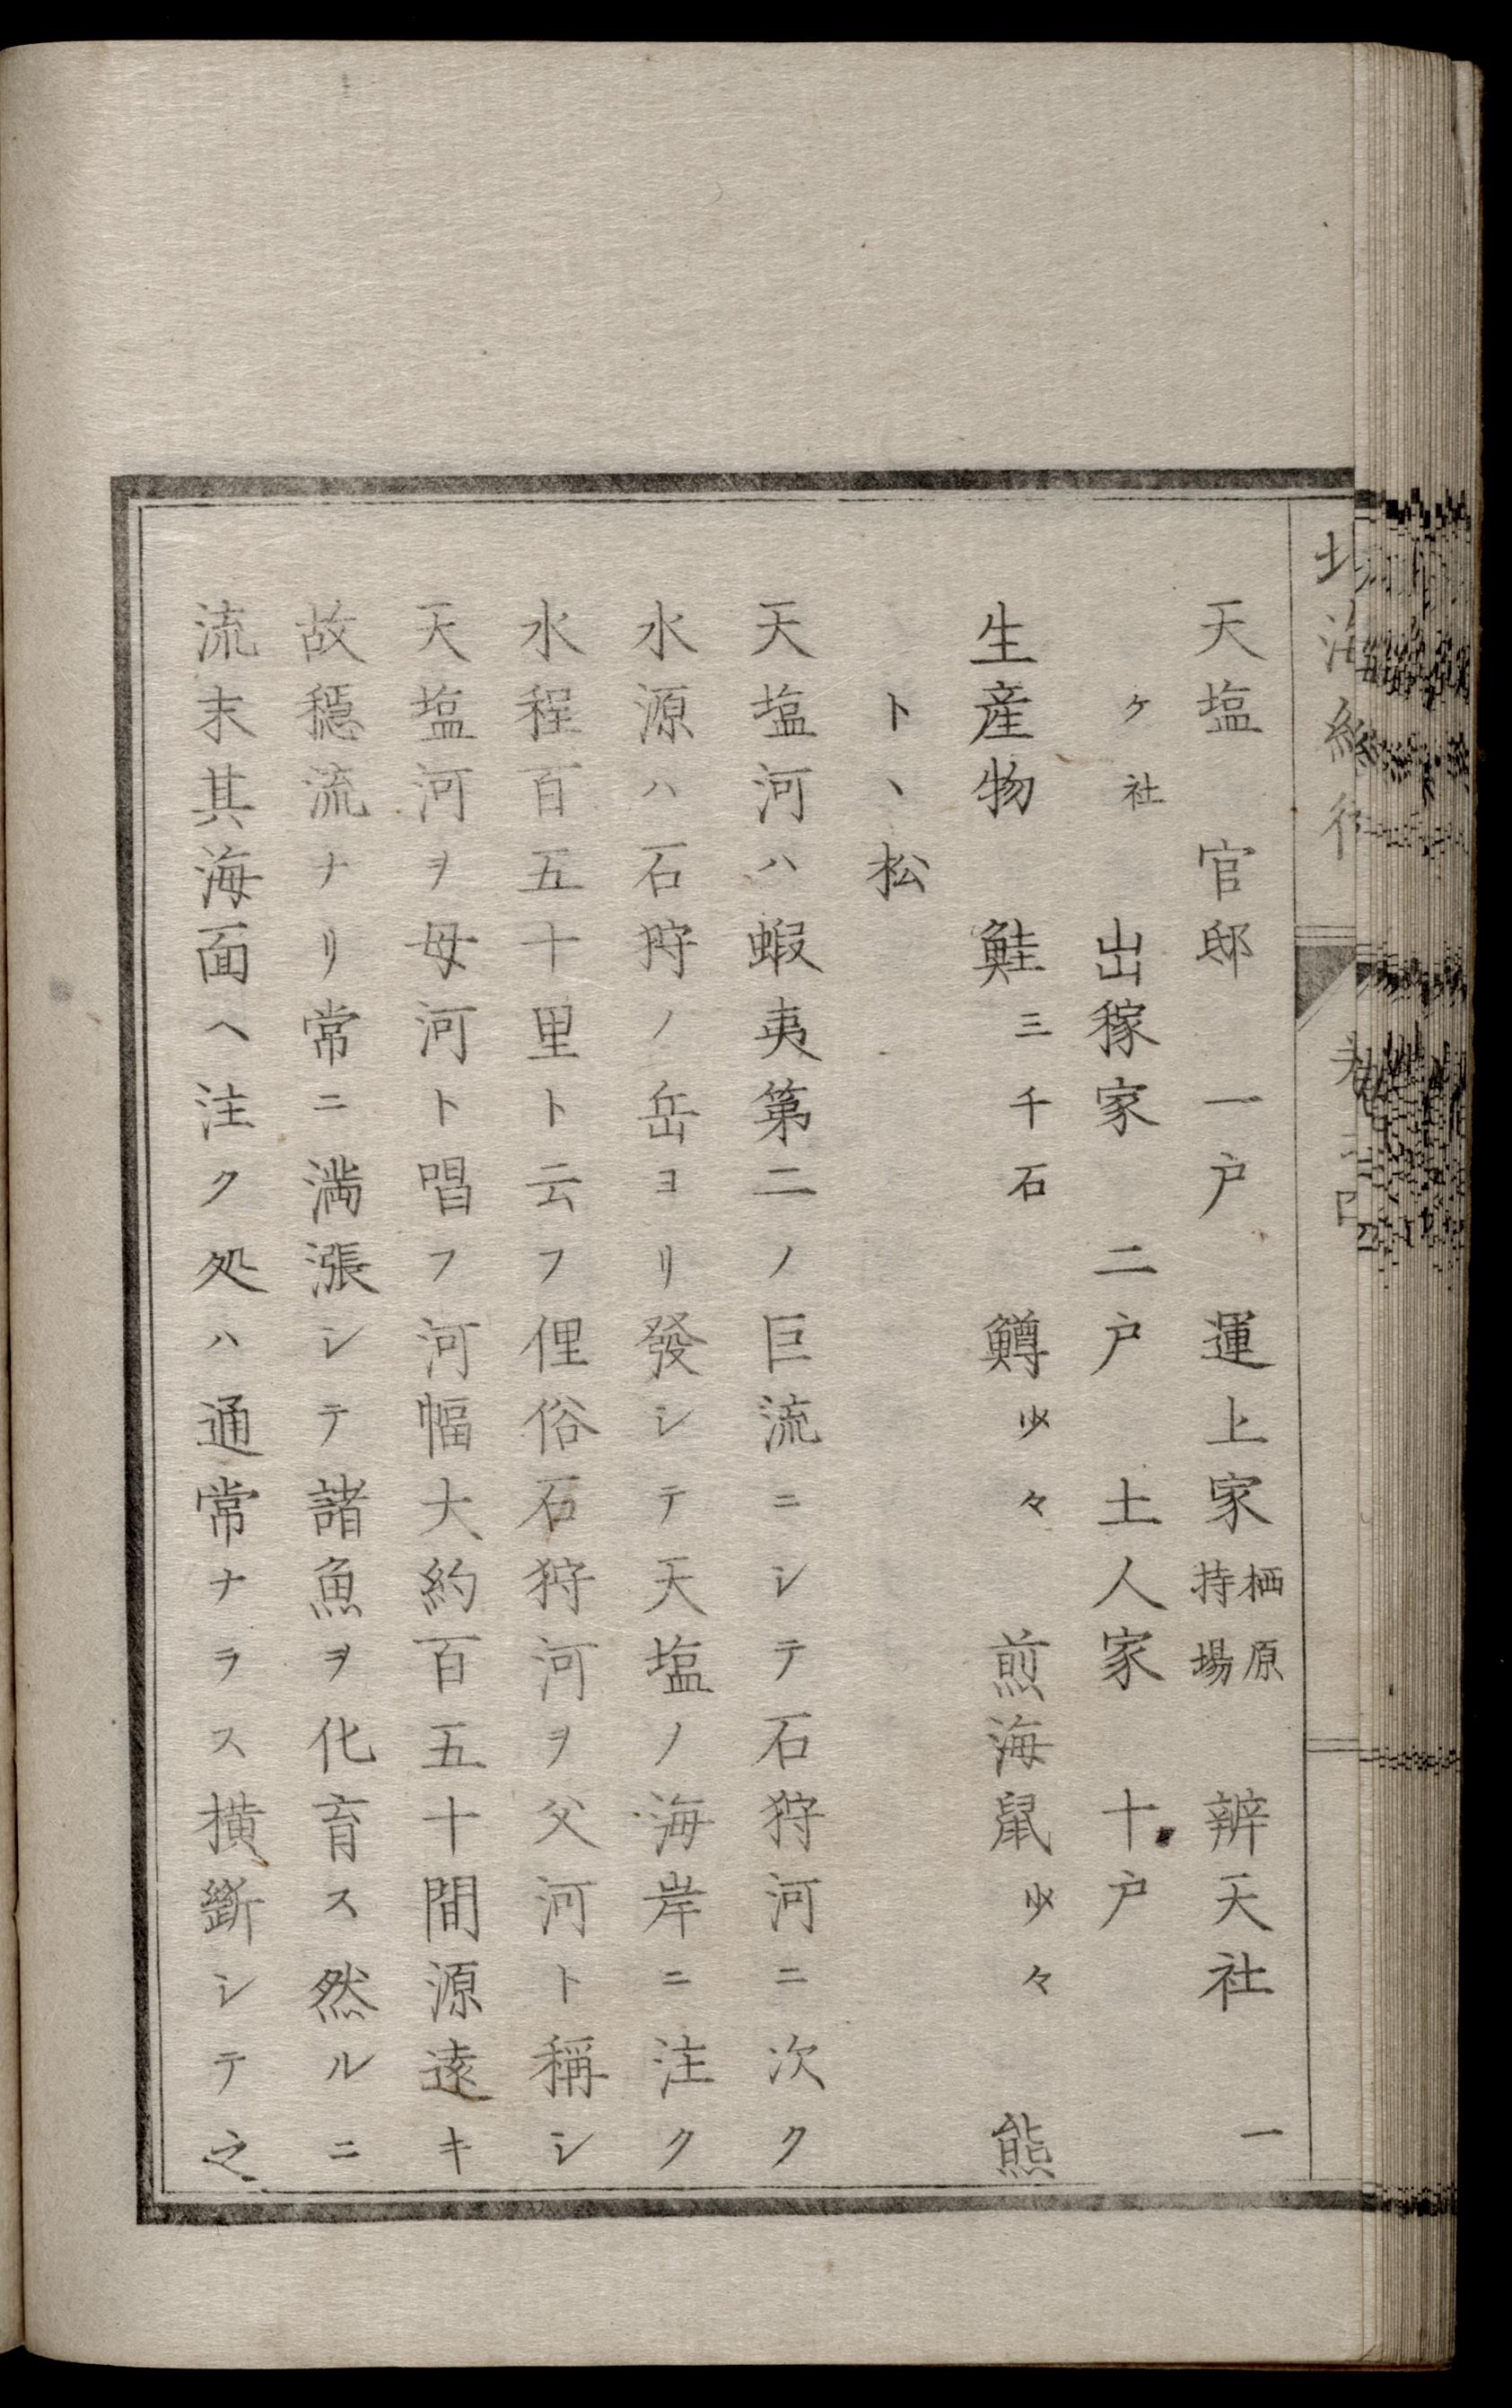 天塩 官邸 一戸 運上家 栖原持場 辨天社 一
ケ社 出稼家 二戸 土人家 十戸
生産物 鮭三千石 鱒少々 煎海鼠少々 熊
トヽ松
天塩河ハ蝦夷第二ノ巨流ニシテ石狩河ニ次ク
水源ハ石狩ノ岳ヨリ發シテ天塩ノ海岸ニ注ク
水程百五十里ト云フ俚俗石狩河ヲ父河ト稱シ
天塩河ヲ母河ト唱フ河幅大約百五十間源遠キ
故穩流ナリ常ニ満漲シテ諸魚ヲ化育ス然ルニ
流末其海面ヘ注ク処ハ通常ナラス横斷シテ之